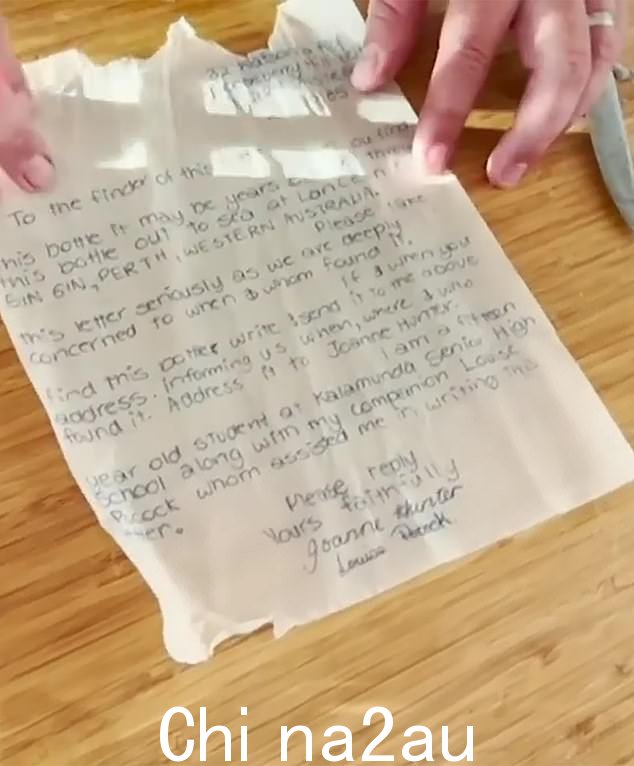 To the finder of this
this bottle it may be years
this bottle out to sea at Lancelin
GIN GIN, PERTH, WESTERN AUSTRALIA.
Please take
this letter seriously as we are deeply
concerned to when & whom found it.
If & when you
find this bottle write & send it to the above
address. Informing us when, where & who
found it. Address it to Joanne Hunter.
I am a fifteen
year old student at Kalamunda Senior High
School along with my companion Louise
Pocock whom assisted me in writing this
Please reply
Yours faithfully
Joanne Hunter
Louise Pocock.
Chi na2au